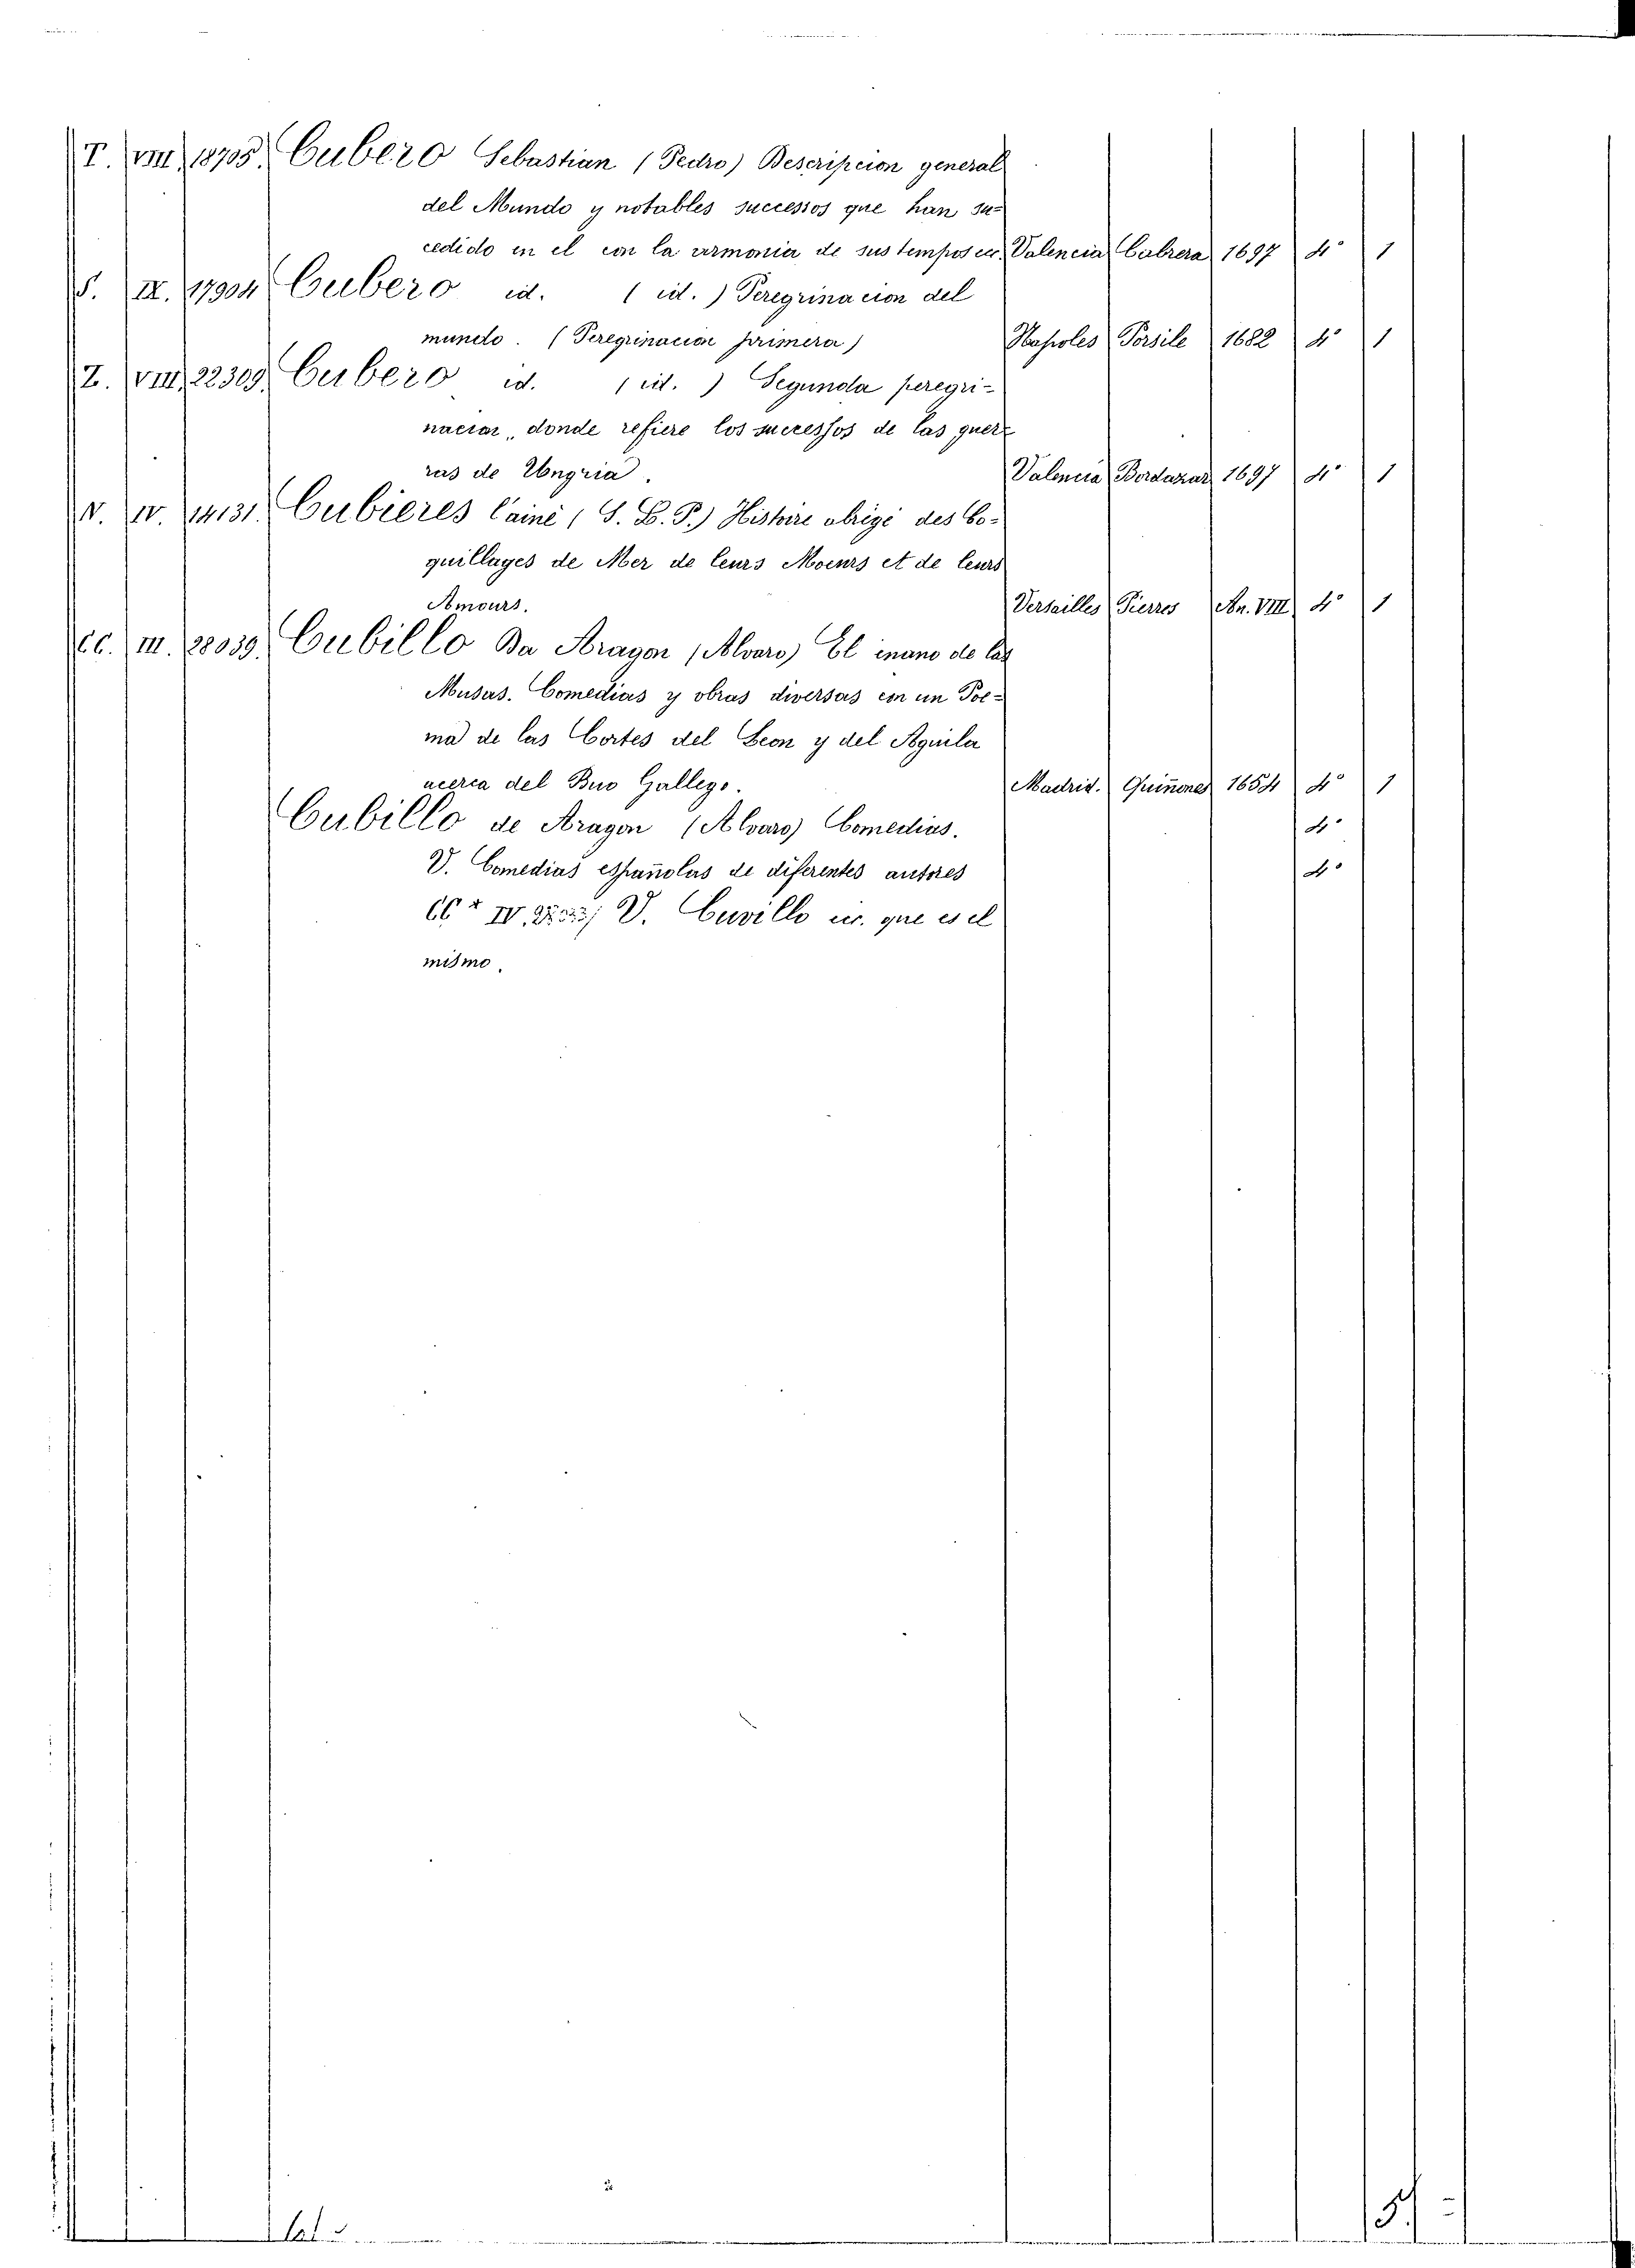 T. VIII. 18705. Cubero Sebastian (Pedro) Descripcion general
del Mundo y notables successos que han su-
cedido en el con la armonia de sus tempos etc. Valencia Cabrera 1697 4º 1
S. IX. 17904 Cubero id. (id.) Peregrinacion del
mundo. (Peregrinacion primera) Napoles Porsile 1682 4º 1
Z. VIII. 22309. Cubero id. (id.) Segunda peregri-
nacion, donde refiere los sucessos de las guer-
ras de Ungria. Valencia Bordazar 1697 4º 1
N. IV. 14131. Cubieres l'ainé (S. L. P.) Histoire abrégé des Co-
quillages de Mer de leurs Moeurs et de leurs
Amours. Versailles Pierres An. VIII 4º 1
CC. III. 28039. Cubillo Da Aragon (Alvaro) El enano de las
Musas. Comedias y obras diversas con un Poe-
ma de las Cortes del Leon y del Aguila
acerca del Buo Gallego. Madrid. Quiñones 1654 4º 1
Cubillo de Aragon (Alvaro) Comedias. 4º
V. Comedias españolas de diferentes autores 4º
IV. V. Cuvillo etc. que es el
mismo.
5